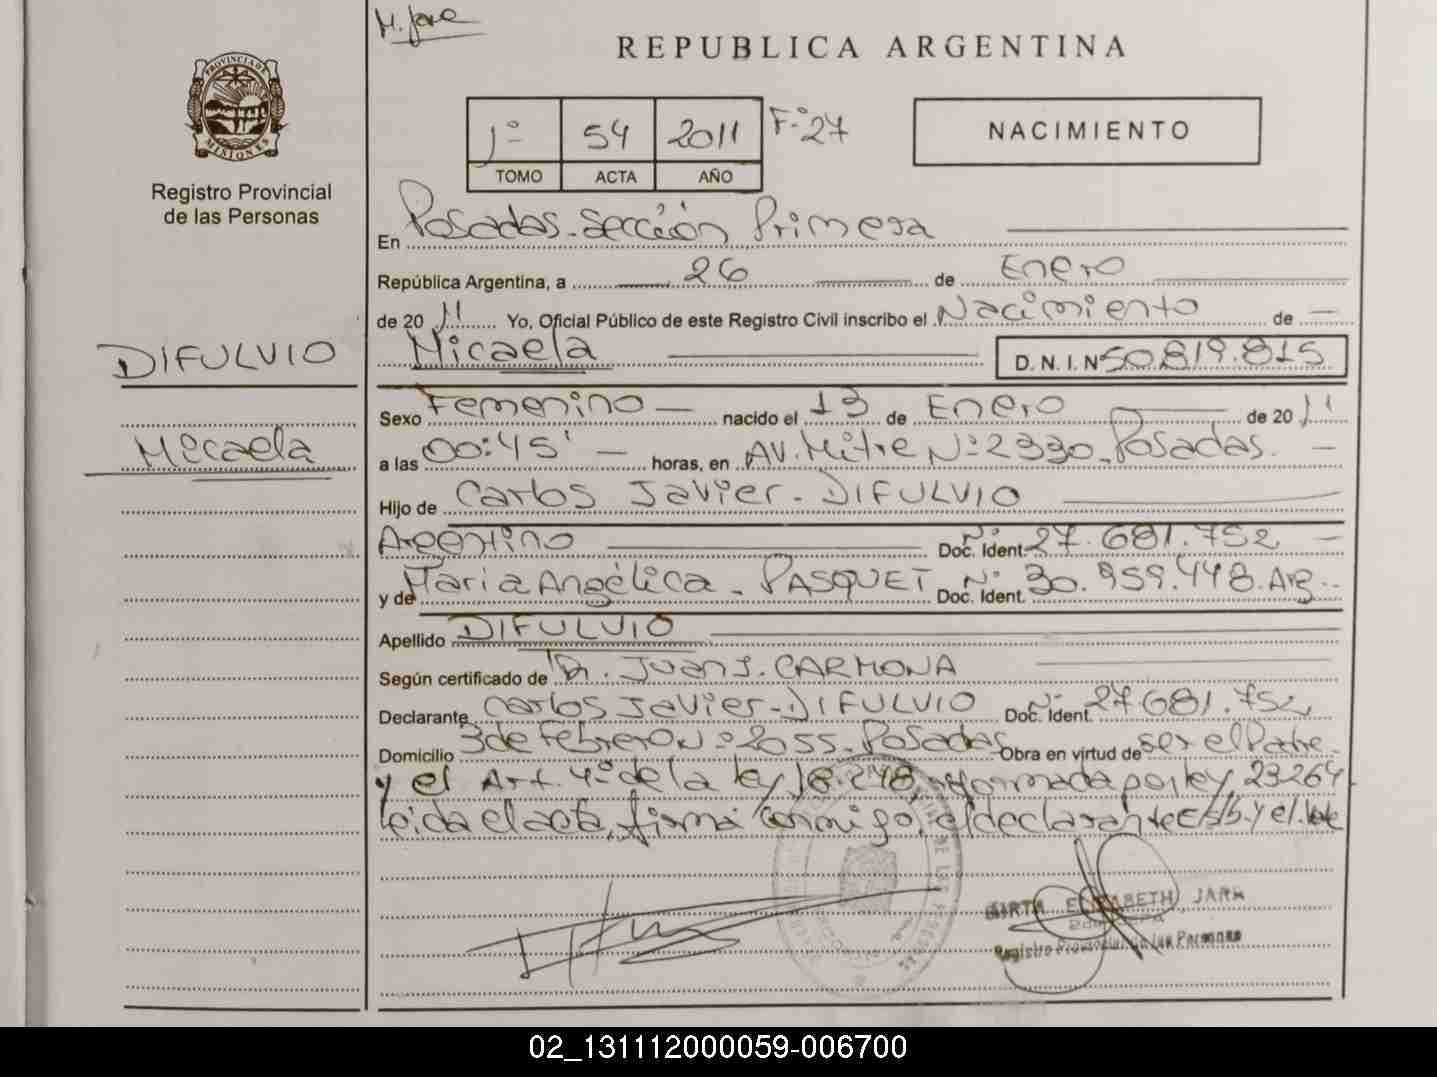 M. Jara
REPUBLICA ARGENTINA
PROVINCIA DE
MISIONES
Registro Provincial
de las Personas
1º 54 2011 Fº 27
TOMO ACTA AÑO
NACIMIENTO
En Posadas - Sección Primera
República Argentina, a 26 de Enero
de 2011 Yo, Oficial Público de este Registro Civil inscribo el Nacimiento de
DIFULVIO
Micaela D. N. I. Nº 50.819.815
Sexo Femenino nacido el 13 de Enero de 2011
Micaela
a las 00:45' horas, en AV. Mitre Nº 2330 - Posadas.
Hijo de Carlos Javier - DIFULVIO
Argentino Doc. Ident. Nº 27.681.752
y de Maria Angélica - PASQUET Doc. Ident. Nº 30.959.448. Arg.
Apellido DIFULVIO
Según certificado de Dr. Juan J. CARMONA
Declarante Carlos Javier - DIFULVIO Doc. Ident. Nº 27.681.752
Domicilio 3 de Febrero Nº 2055 - Posadas Obra en virtud de ser el Padre
y el Art. 4º de la ley 18.248, reformada por ley 23264
leida el acta, firma conmigo, el declarante
MIRTA ELIZABETH JARA
Registro Provincial de las Personas
02_131112000059-006700